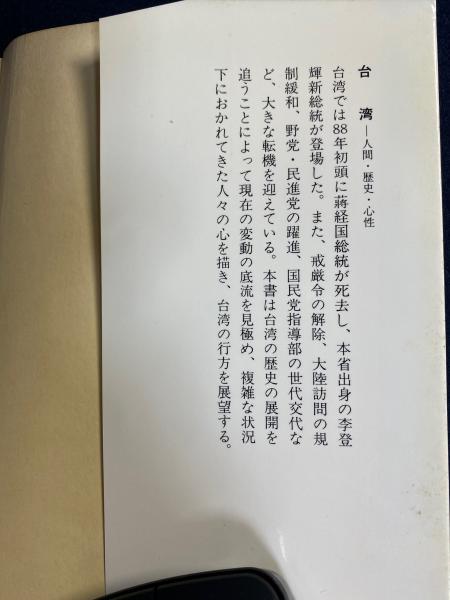 台　湾―人間・歴史・心性
台湾では88年初頭に蔣経国総統が死去し、本省出身の李登
輝新総統が登場した。また、戒厳令の解除、大陸訪問の規
制緩和、野党・民進党の躍進、国民党指導部の世代交代な
ど、大きな転機を迎えている。本書は台湾の歴史の展開を
追うことによって現在の変動の底流を見極め、複雑な状況
下におかれてきた人々の心を描き、台湾の行方を展望する。